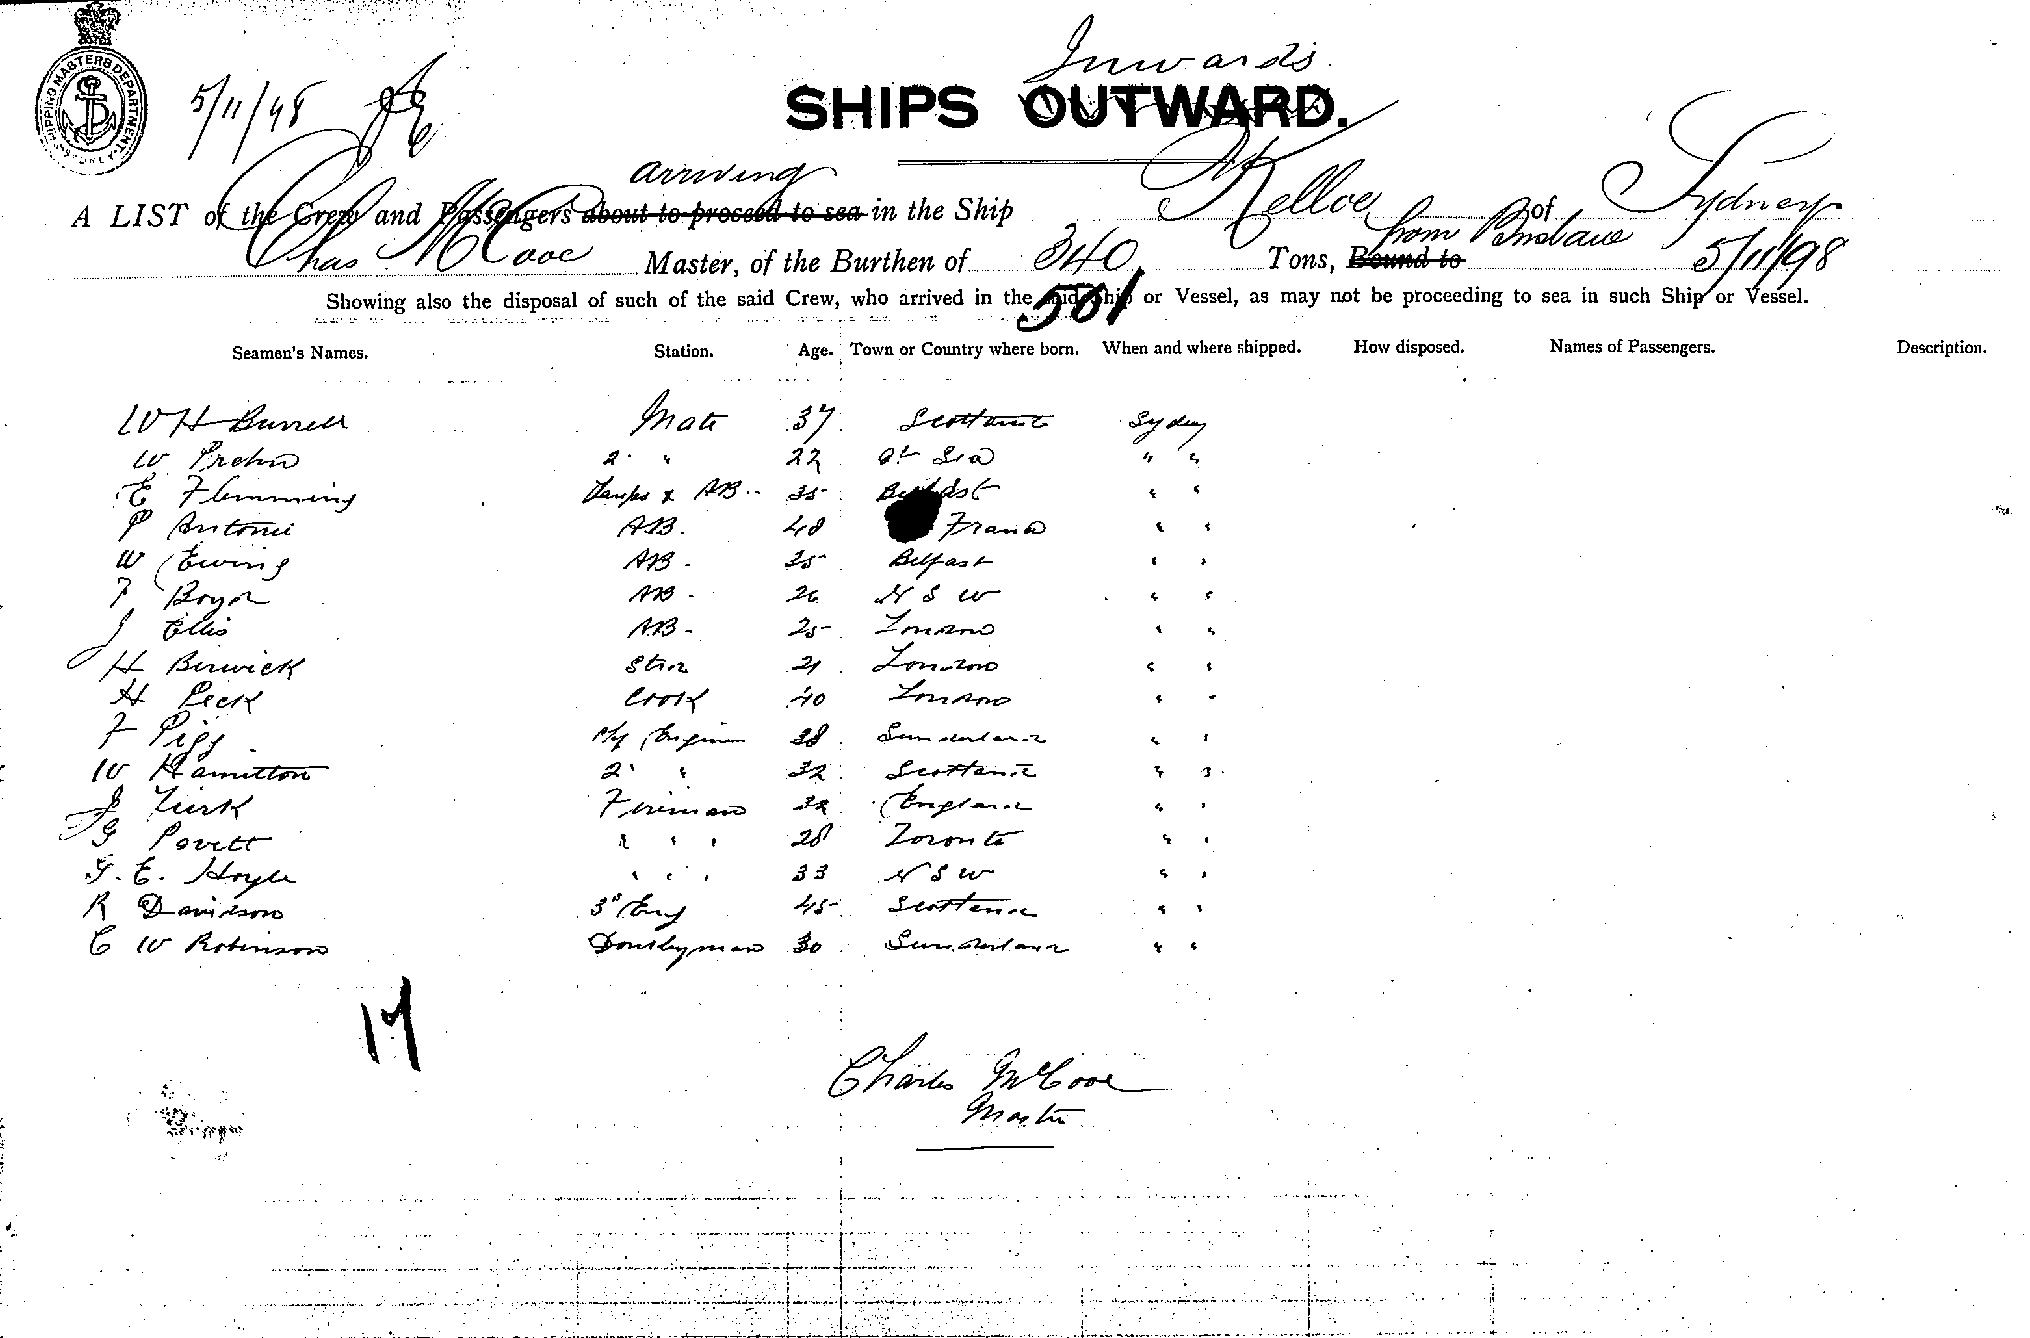 SHIPPING MASTERS DEPARTMENT
5/11/98
Inwards
SHIPS OUTWARD.
arriving
A LIST of the Crew and Passengers about to proceed to sea in the Ship Kelloe of Sydney
Chas McCooe Master, of the Burthen of 340 Tons, Bound to from 5/11/98
Showing also the disposal of such of the said Crew, who arrived in the said Ship or Vessel, as may not be proceeding to sea in such Ship or Vessel.
501
Seamen's Names. Station. Age. Town or Country where born. When and where shipped. How disposed. Names of Passengers. Description.
W H Burrell Mate 37 Scotland Sydney
W Prehn 2 " 22 At Sea " "
E Flemming Lamps & AB 35 Belfast " "
P Antoni AB. 48 France " "
W Ewing AB. 25 Belfast " "
F Boyd AB. 26 N S W " "
J Ellis AB. 25 London " "
H Berwick 21 London " "
H Peck Cook 40 London " "
F Pigg Engineer 38 Sunderland " "
W Hamilton 2 " 32 Scotland " "
J Turk Fireman 32 England " "
G Povett " " " 28 Toronto " "
G. E. Hoyle " " " 33 N S W " "
R Davidson 3d Eng 45 Scotland " "
C W Robinson Donkeyman 30 Sunderland " "
17
Charles McCooe
Master